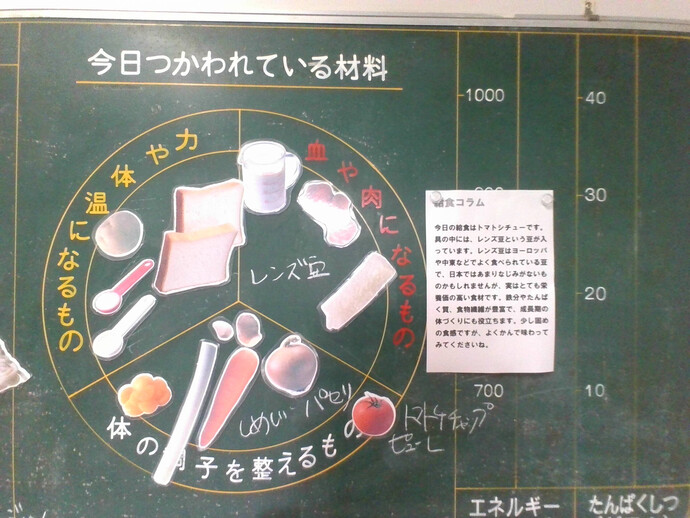 今日つかわれている材料
体や力
温になるもの
血や肉になるもの
レンズ豆
しめじ パセリ
体の調子を整えるもの
トマトケチャップ
ピューレ
1000
700
40
30
20
10
エネルギー
たんぱくしつ
給食コラム
今日の給食はトマトシチューです。
具の中には、レンズ豆という豆が入
っています。レンズ豆はヨーロッパ
や中東などでよく食べられている豆
で、日本ではあまりなじみがないも
のかもしれませんが、実はとても栄
養価の高い食材です。鉄分やたんぱ
く質、食物繊維が豊富で、成長期の
体づくりにも役立ちます。少し固め
の食感ですが、よくかんで味わって
みてくださいね。